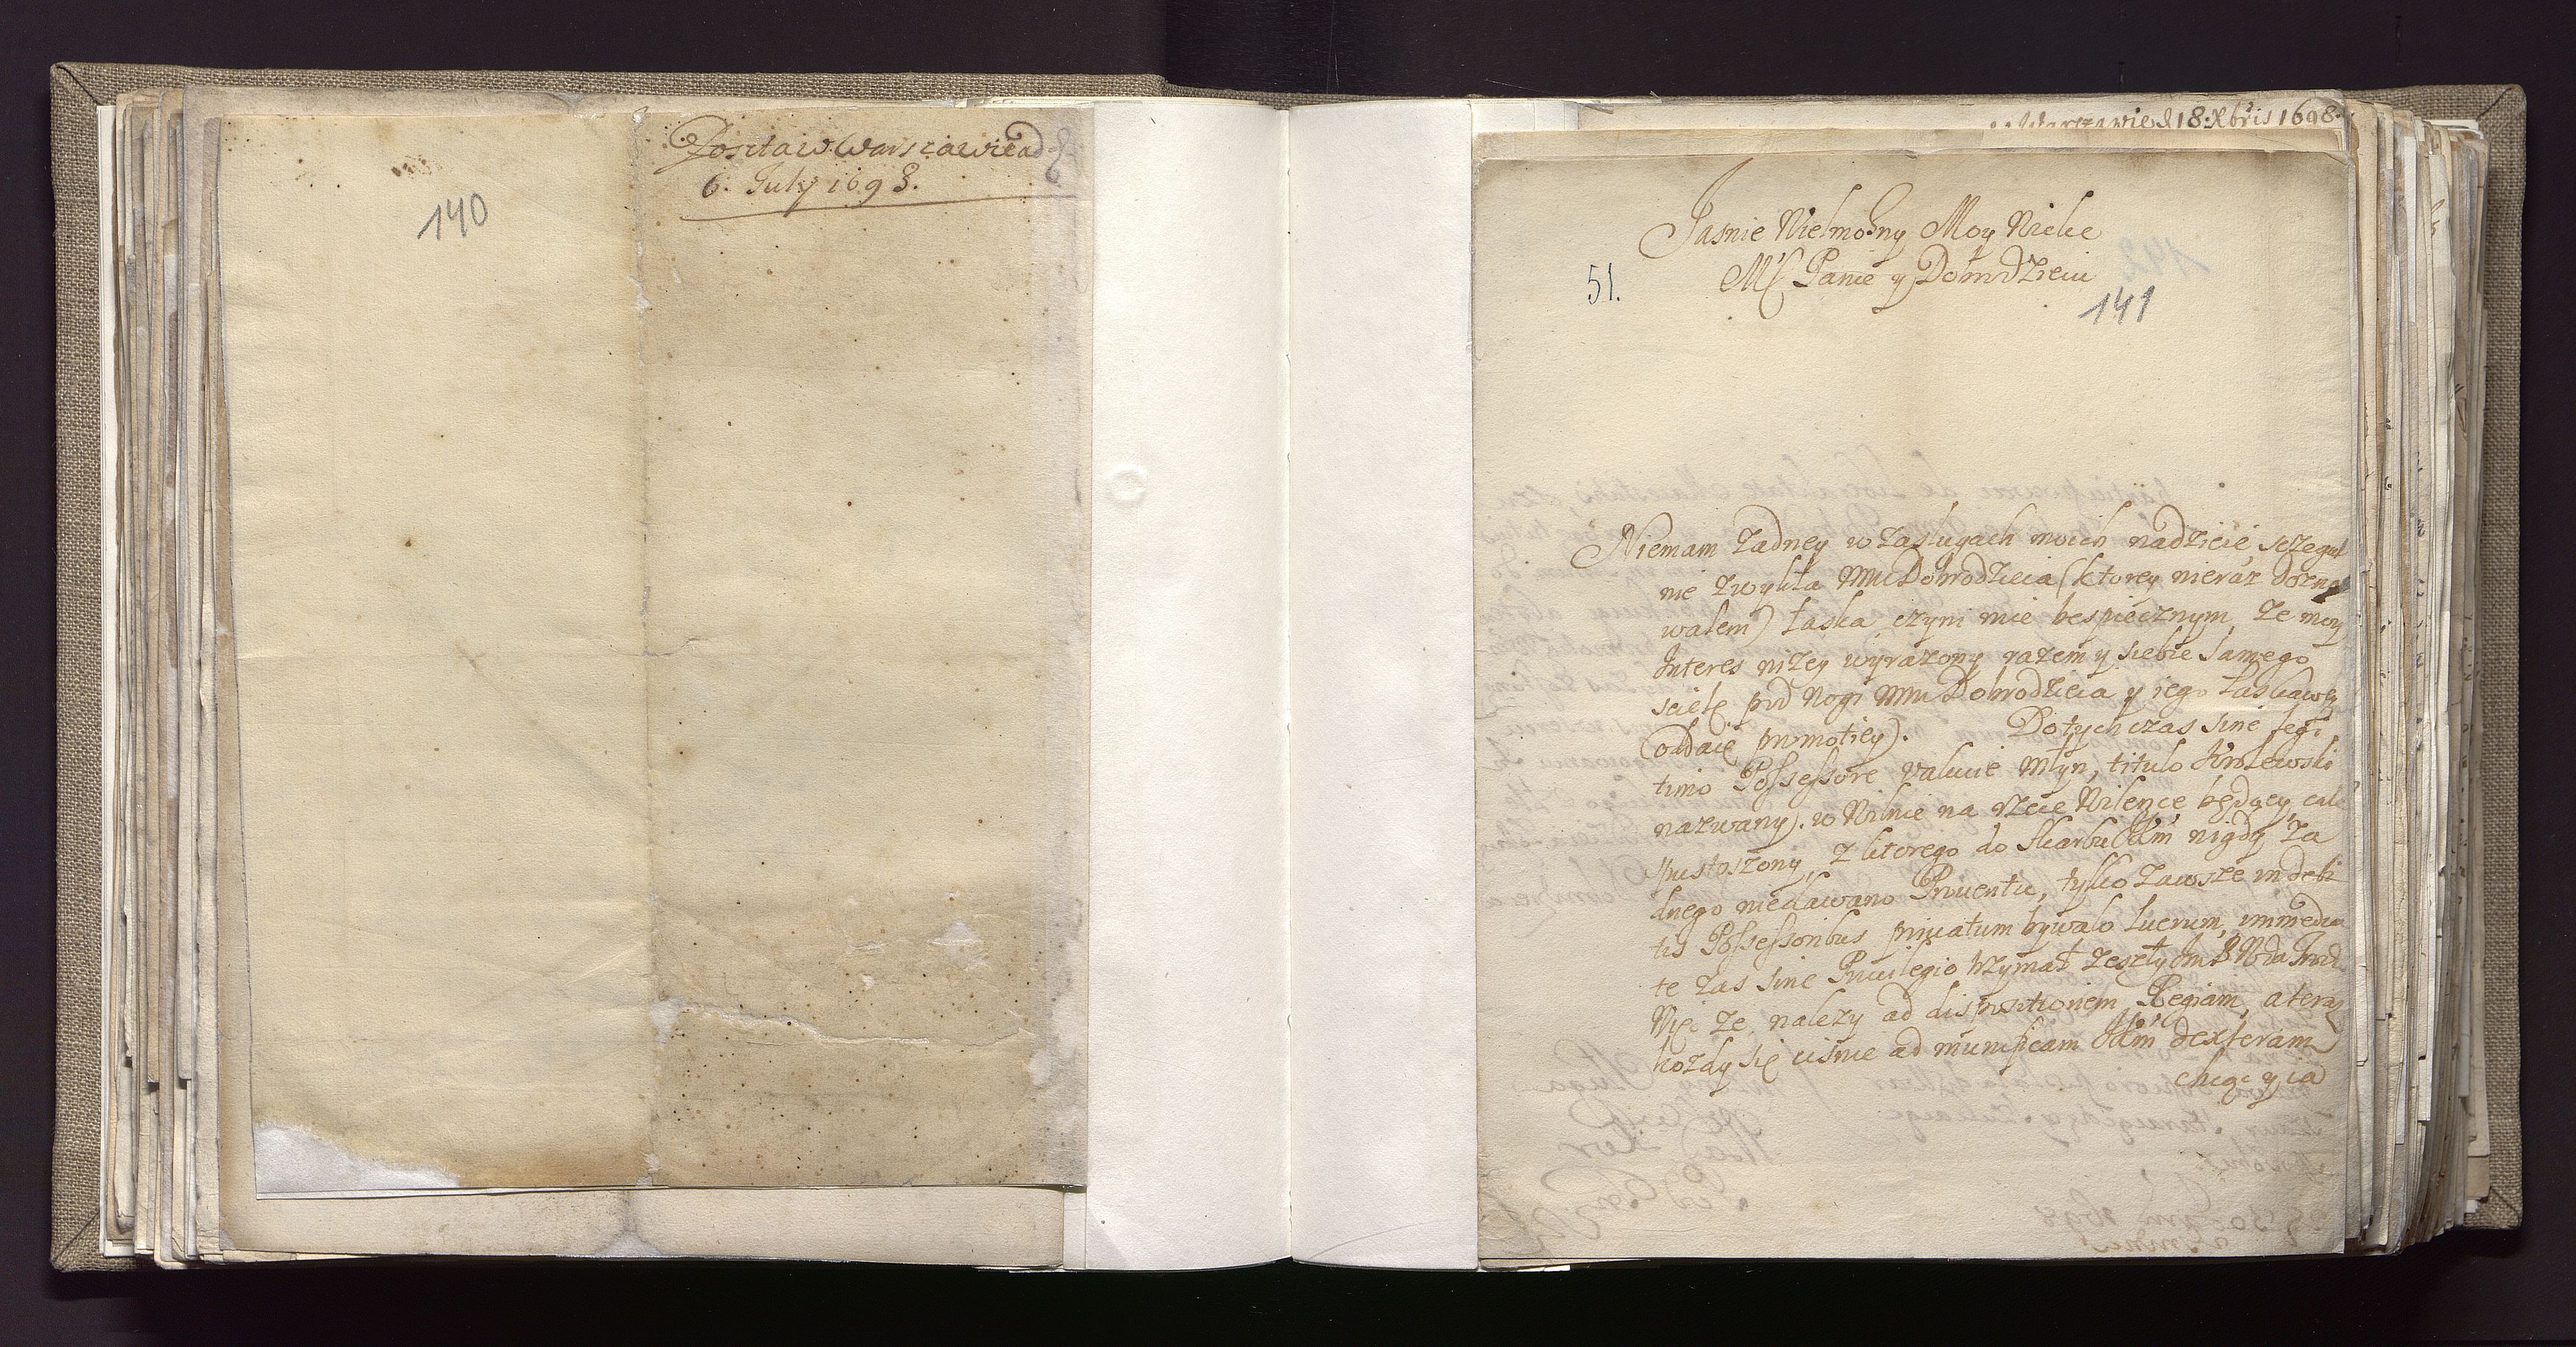 140
Doszła w Warszawie ad
6. July 1698.
Warszawie d 18: Xbris 1698.
Jasnie Wielmożny Moy Wielce
Mś Panie y Domdzieiu
51.
141
Niemam żadney w zasługach moich nadzieie, sczegul
nie zwykła MMDobrodzieia (ktorey nieraz dozna
wałem) łaska czyni mie bespiecznym, że moy
Interes niżey wyrażony razem y siebie samego
sciele pod Nogi MMDobrodzieia y iego łaskawey
oddaię promotiey. Dotychczas sine legi
timo Possessore vakuie Młyn, titulo Krolewski
nazwany, w Wilnie na rzece Wilence będący, cale
spustoszony, z ktorego do Skarbu JKM nigdy ża
dnego niedawano Prouentu, tylko zawsze indebi
tis Possessoribus priuatum bywało lucrum, immedia
te zas sine Priuilegio trzymał zeszły
Więc że należy ad dispositionem Regiam, a teraz
kożdy się ciśnie ad munificam JKM dexteram
chcąc y ia